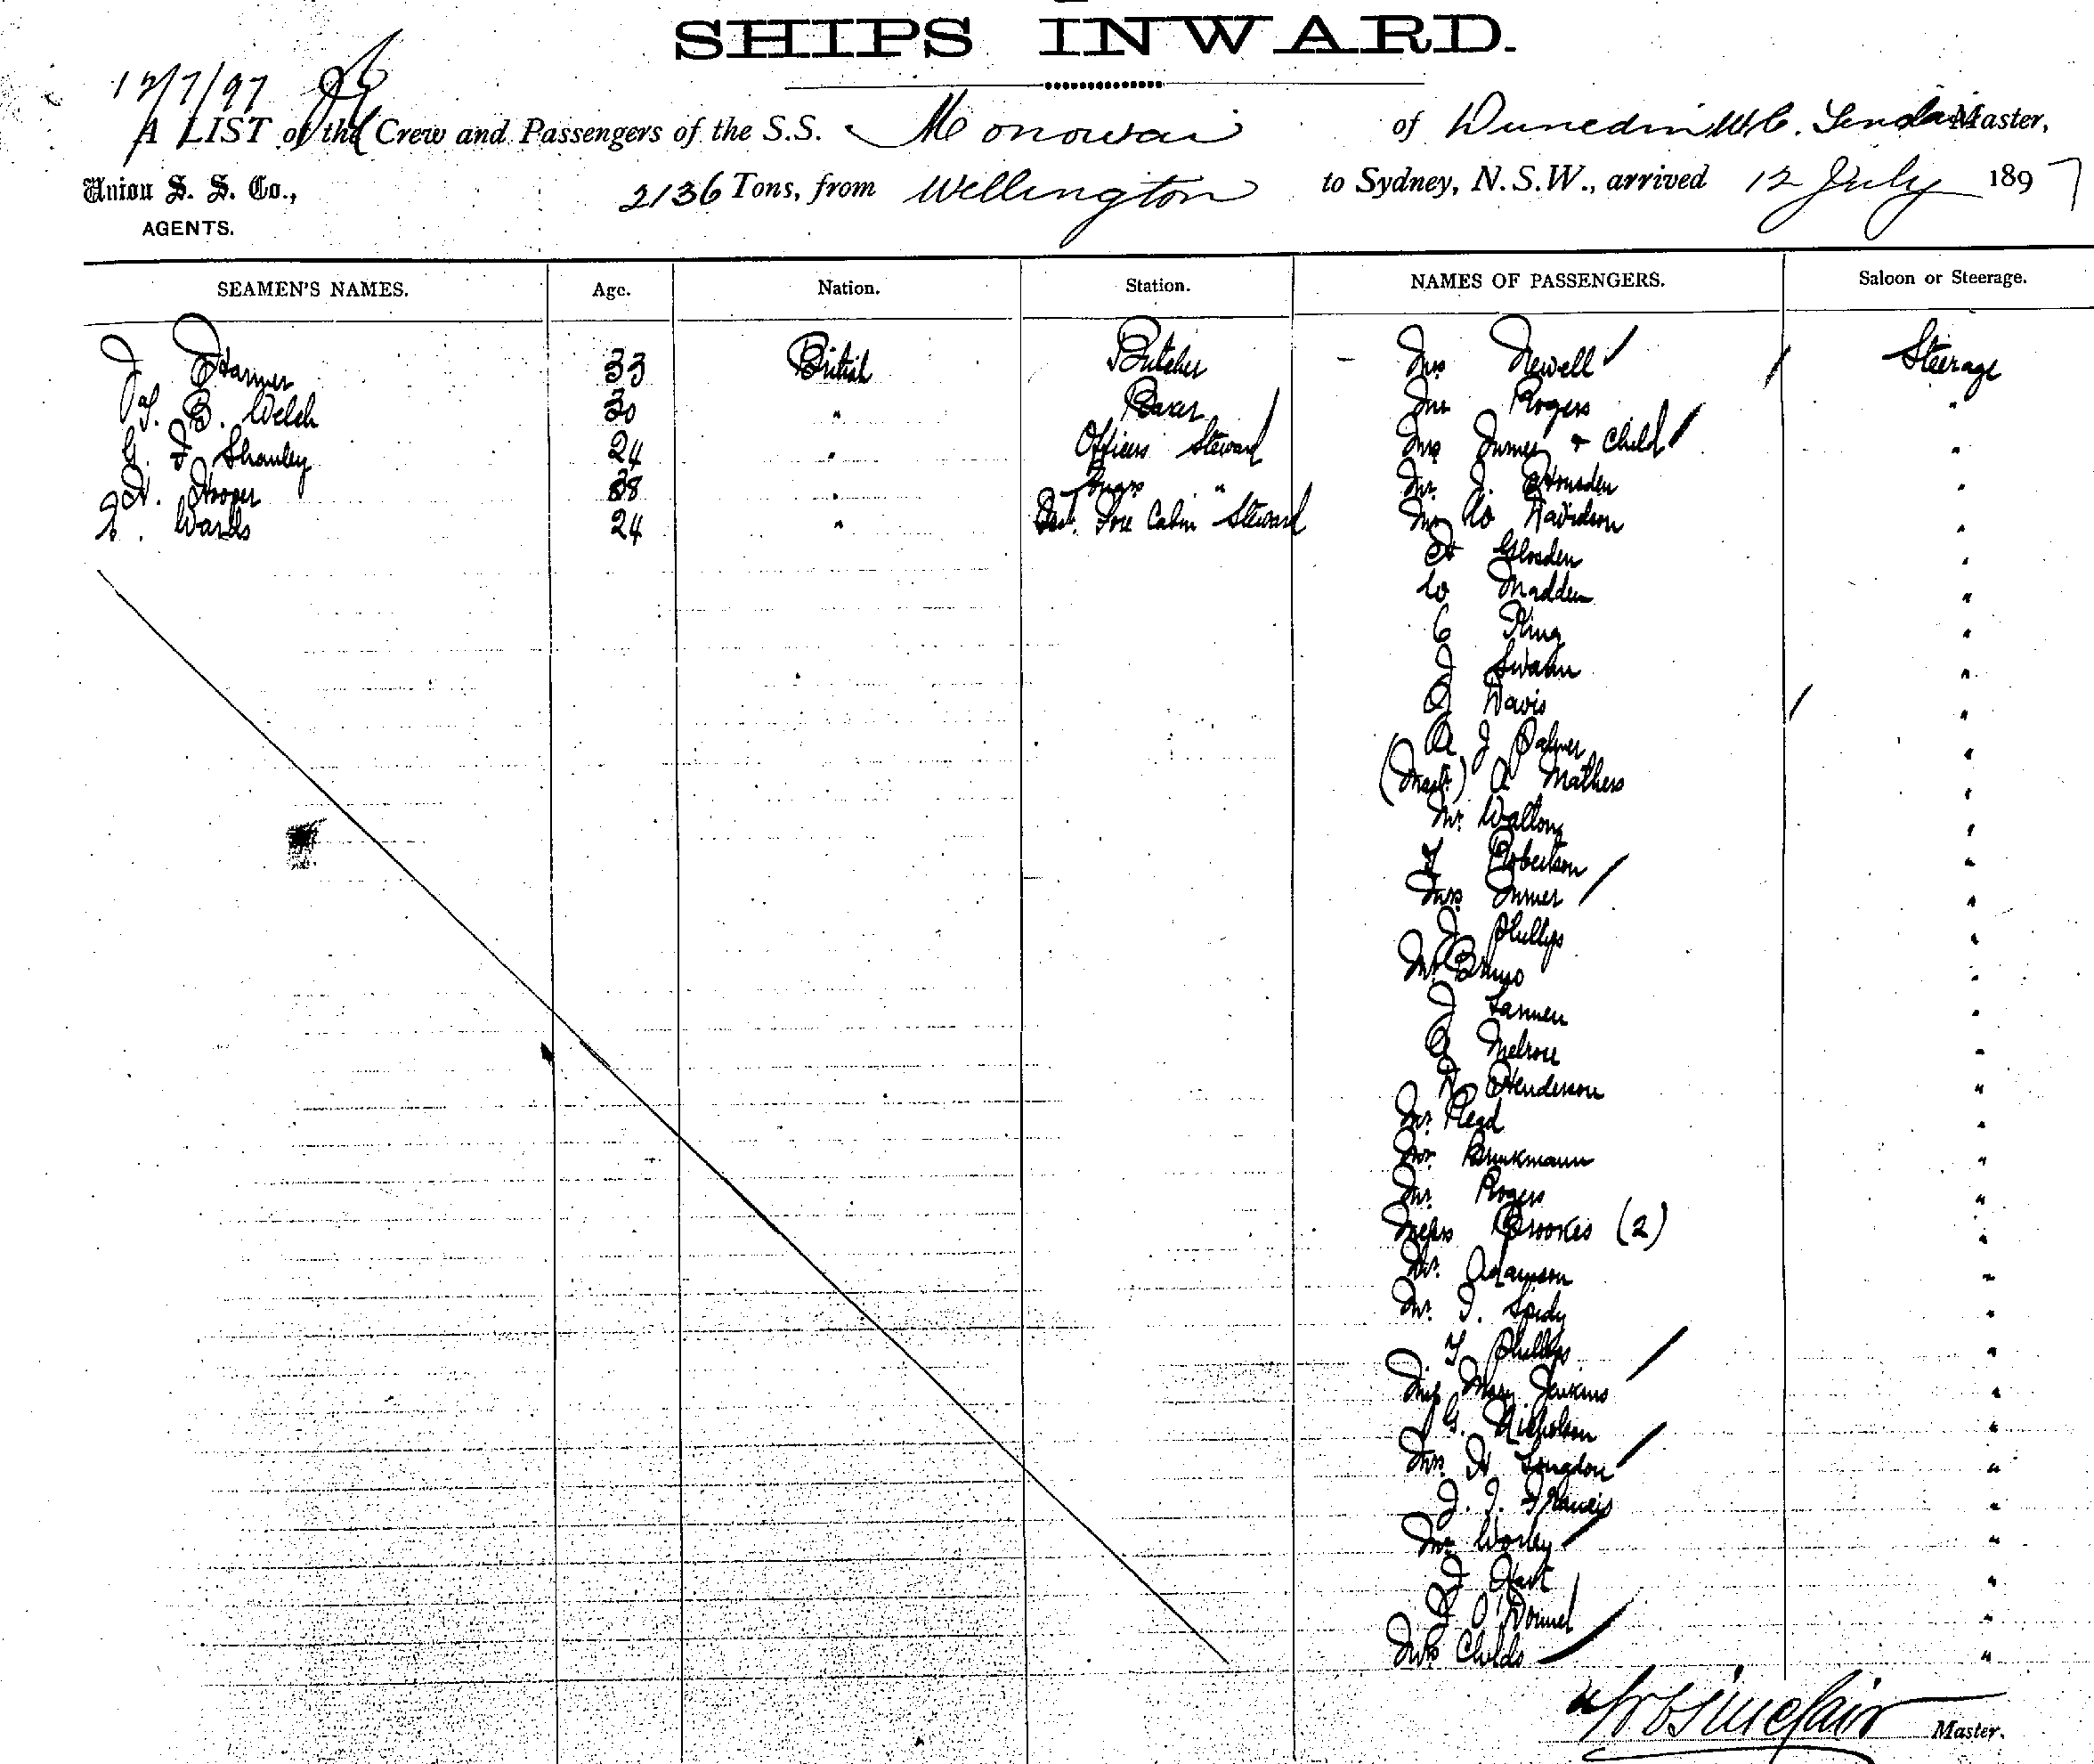 SHIPS INWARD.
12/7/97
A LIST of the Crew and Passengers of the S.S. Monowai of Dunedin W. C. Sinclair Master,
Union S. S. Co., AGENTS. 2136 Tons, from Wellington to Sydney, N.S.W., arrived 12 July 1897
SEAMEN'S NAMES. Age. Nation. Station. NAMES OF PASSENGERS. Saloon or Steerage.
J Harmer 33 British Butcher Mrs Newell Steerage
B. Welch 30 " Baker Mr Rogers "
G. F. Shanley 24 " Officers Steward Mrs Turner + Child "
H. Hooper 38 " Engrs " Mr. J. "
Wards 24 " Fore Cabin Steward Davidson "
H Glosden "
W Madden "
C King "
J Swahn "
A Davis "
A J Palmer "
(Mastr) A Mathers "
Mr. Walton "
T Robertson "
Mrs. Turner "
J Phillips "
Mr. "
J Larmen "
A Melrose "
Henderson "
Mr. Read "
Mr. Brinkmann "
Mr. Rogers "
Messrs Brookes (2) "
Mr. Adamson "
Mr. J. Spidy "
T Phillips "
Miss Mary Jenkins "
G. Nicholson "
Mrs. H Langdon "
J. J. Francis "
Worley "
J Hart "
J O'Donnel "
Mrs Childs "
W C Sinclair Master.